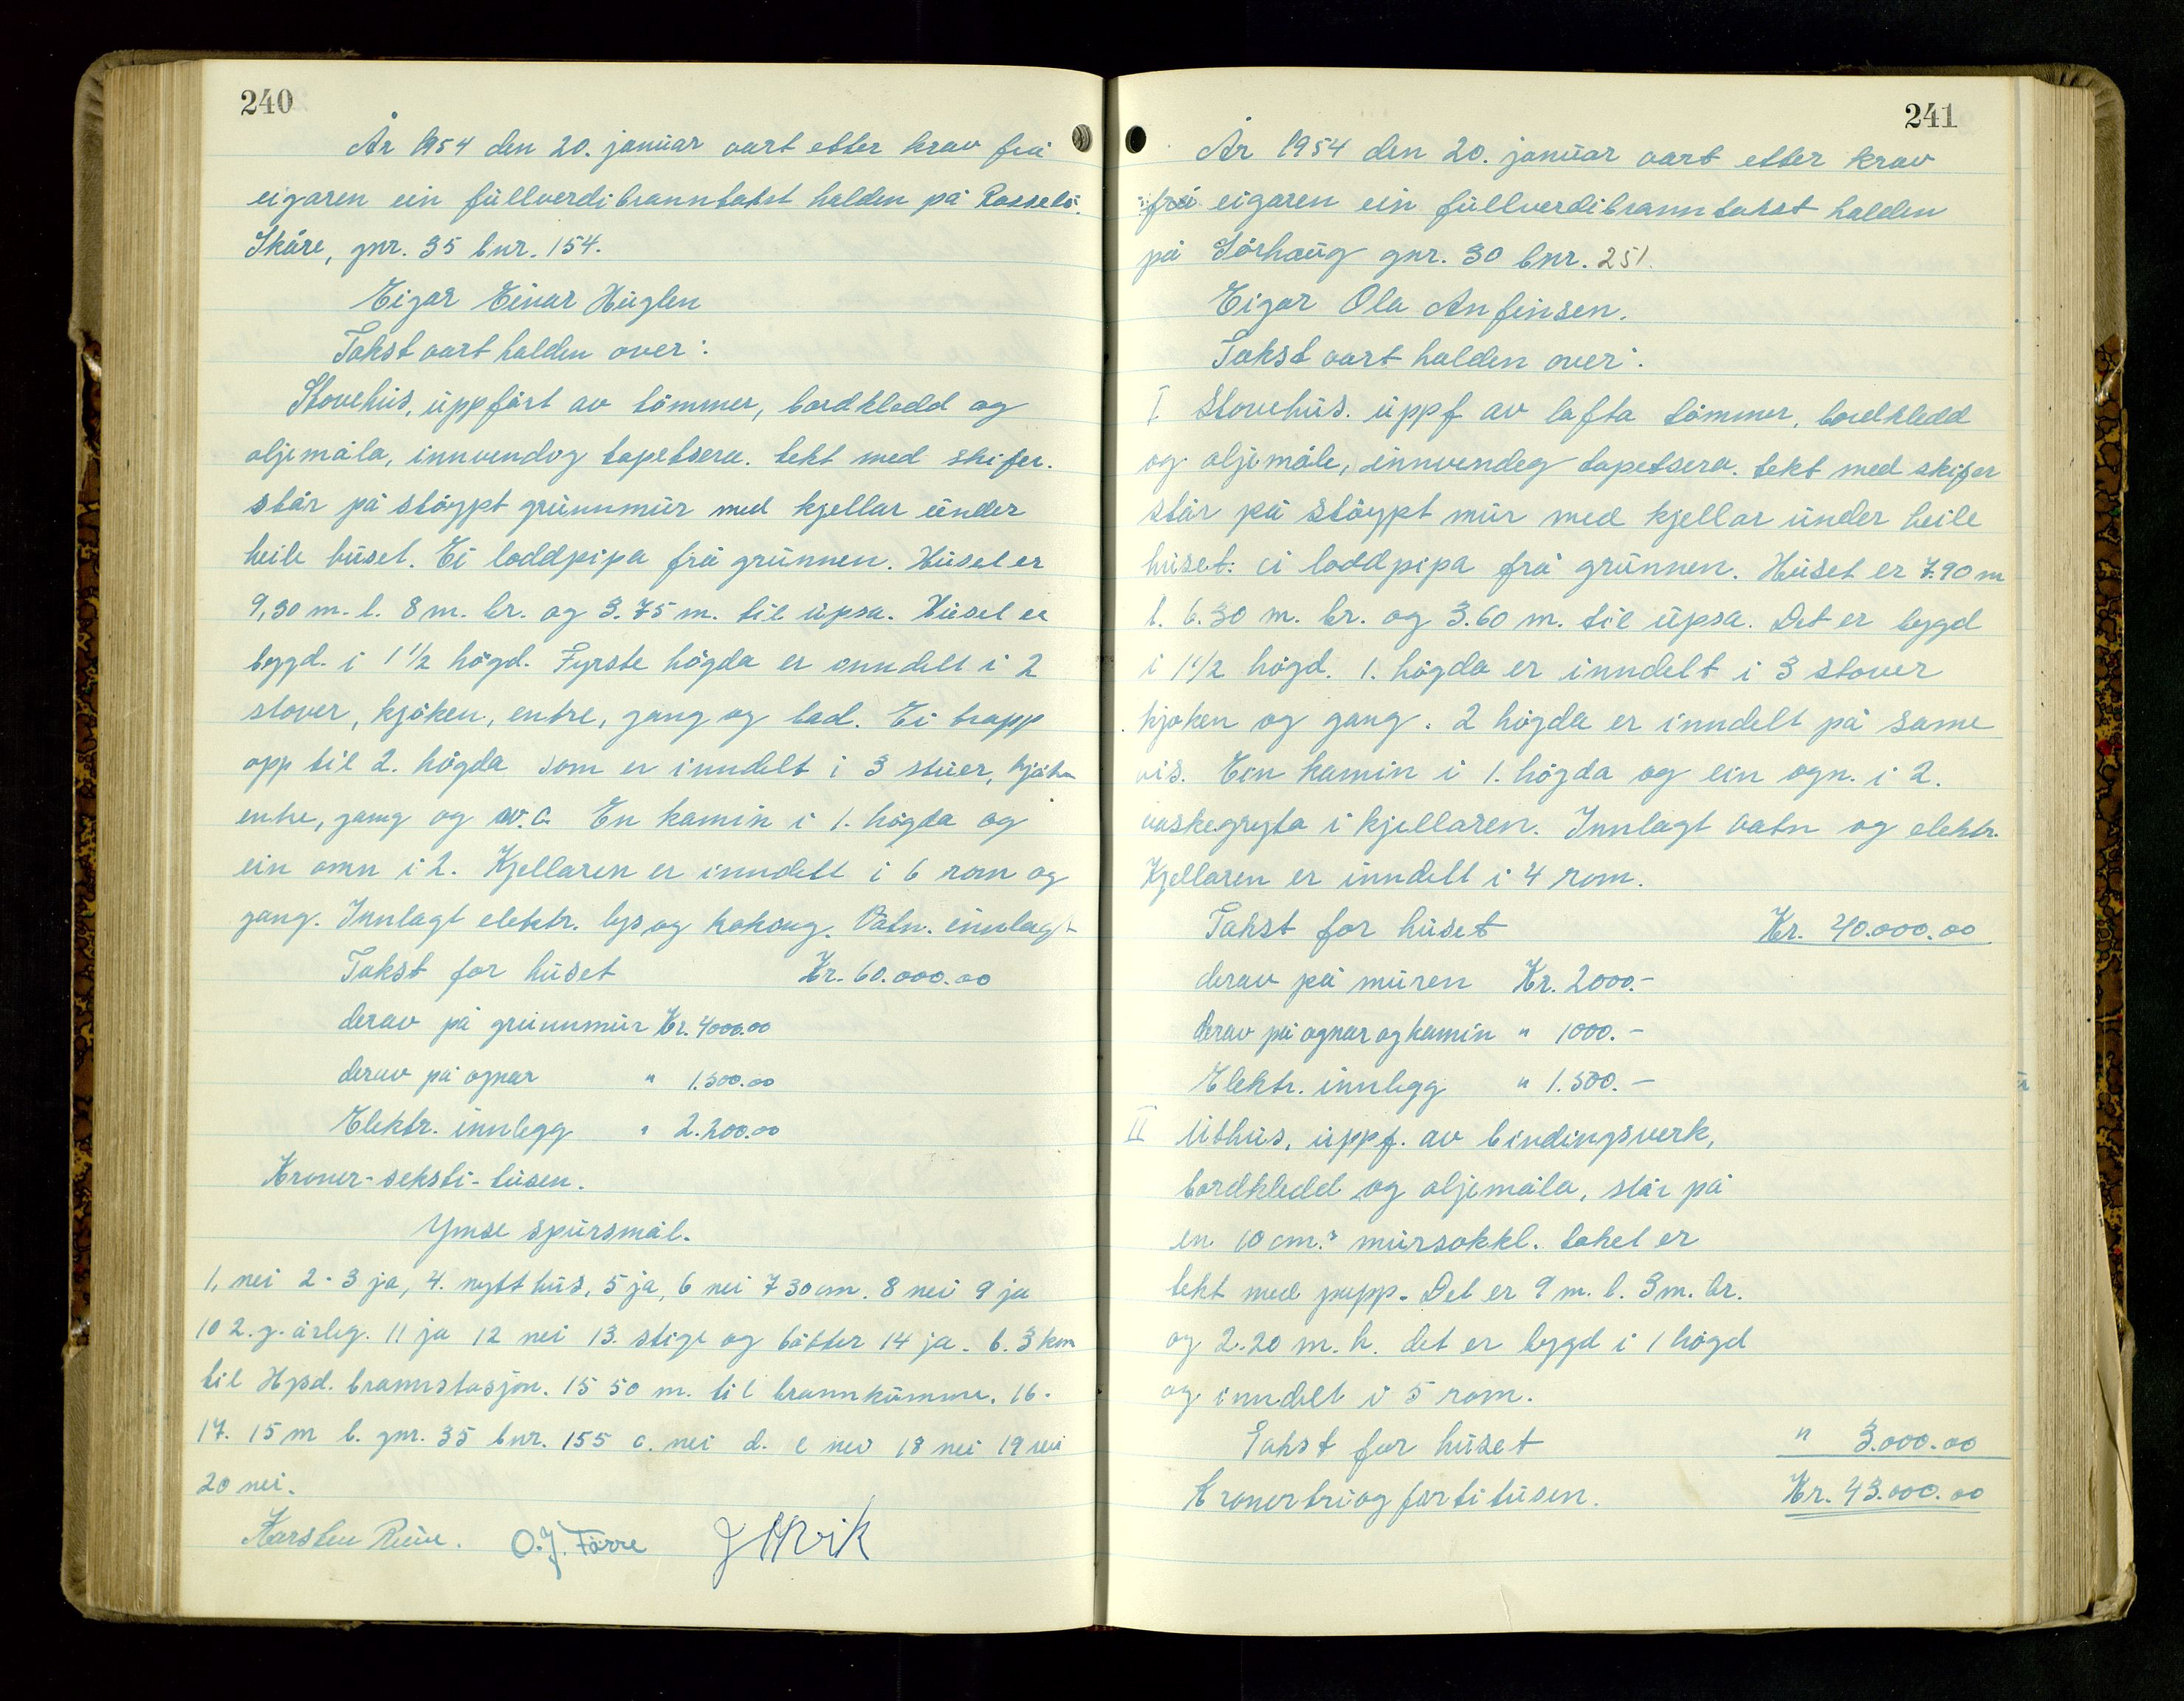 240
År 1954 den 20. januar vart etter krav frå
eigaren ein fullverdibranntakst halden på
Skåre, gnr. 35 bnr. 154.
Eigar Einar Huglen
Takst vart halden over:
Stovehus, uppfört av tömmer, bordkledd og
oljemåla, innvendog tapetsera. tekt med skifer.
står på stöypt grunnmur med kjellar under
heile huset. Ei loddpipa frå grunnen. Huset er
9,30 m. l. 8 m. br. og 3.75 m. til upsa. Huset er
bygd. i 1 1/2 högd. Fyrste högda er inndelt i 2
stover, kjöken, entre, gang og bad. Ei trapp
opp til 2. högda som er inndelt i 3 stuer, kjöken
entre, gang og w.c. En kamin i 1. högda og
ein omn i 2. Kjellaren er inndelt i 6 rom og
gang. Innlagt elektr. lys og koking. Vatn. innlagt
Takst for huset Kr. 60.000.00
derav på grunnmur Kr. 4000.00
derav på ognar " 1.500.00
Elektr. innlegg " 2.200.00
Kroner-seksti-tusen.
Ymse spursmål.
1. nei 2-3 ja, 4. nytt hus, 5 ja, 6 nei 7 30 cm. 8 nei 9 ja
10 2. g. årleg. 11 ja 12 nei 13. stige og bötter 14 ja. b. 3 km
til Hgsd. brannstasjon. 15 50 m. til brannkumme. 16-
17. 15 m b. gnr. 35 bnr. 155 c. nei d. e nei 18 nei 19 nei
20 nei.
Karsten O. J. Förre
241
År 1954 den 20. januar vart etter krav
frå eigaren ein fullverdibranntakst halden
på Sörhaug gnr. 30 bnr. 251.
Eigar Ola Anfinsen.
Takst vart halden over:
I Stovehus. uppf av lafta tömmer, bordkledd
og oljemåle, innvendeg tapetsera. tekt med skifer
står på stöypt mur med kjellar under heile
huset: ei loddpipa frå grunnen. Huset er 7.90 m
l. 6.30 m. br. og 3.60 m. til upsa. Det er bygd
i 1 1/2 högd. 1. högda er inndelt i 3 stover
kjoken og gang. 2 högda er inndelt på same
vis. Ein kamin i 1. högda og ein ogn. i 2.
vaskegryta i kjellaren. Innlagt vatn og elektr.
Kjellaren er inndelt i 4 rom.
Takst for huset Kr. 40.000.00
derav på muren Kr. 2000.-
derav på ognar og kamin " 1000.-
Elektr. innlegg " 1.500.-
II Uthus, uppf. av bindingsverk,
bordkledd og oljemåla, står på
en 10 cm.s mursokkl. taket er
tekt med papp. Det er 9 m. l. 3 m. br.
og 2.20 m. h. det er bygd i 1 högd
og inndelt i 5 rom.
Takst for huset " 3.000.00
Kroner tri og förti tusen. Kr. 43.000.00